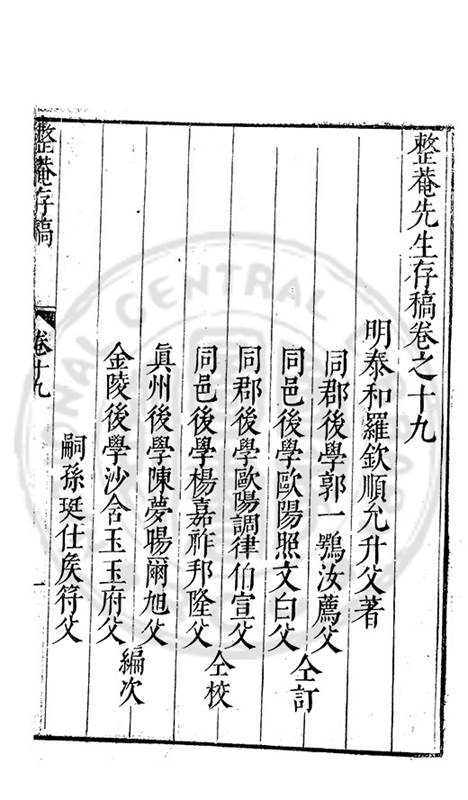 整菴先生存稿卷之十九
明泰和羅欽順允升父著
同郡後學郭一鶚汝薦父
同邑後學歐陽照文白父
仝訂
同郡後學歐陽調律伯宣父
同邑後學楊嘉祚邦隆父
仝校
眞州後學陳夢暘爾旭父
金陵後學沙含玉玉府父
編次
嗣孫珽仕矦符父
整菴存稿
卷十九
一
NATIONAL CENTRAL